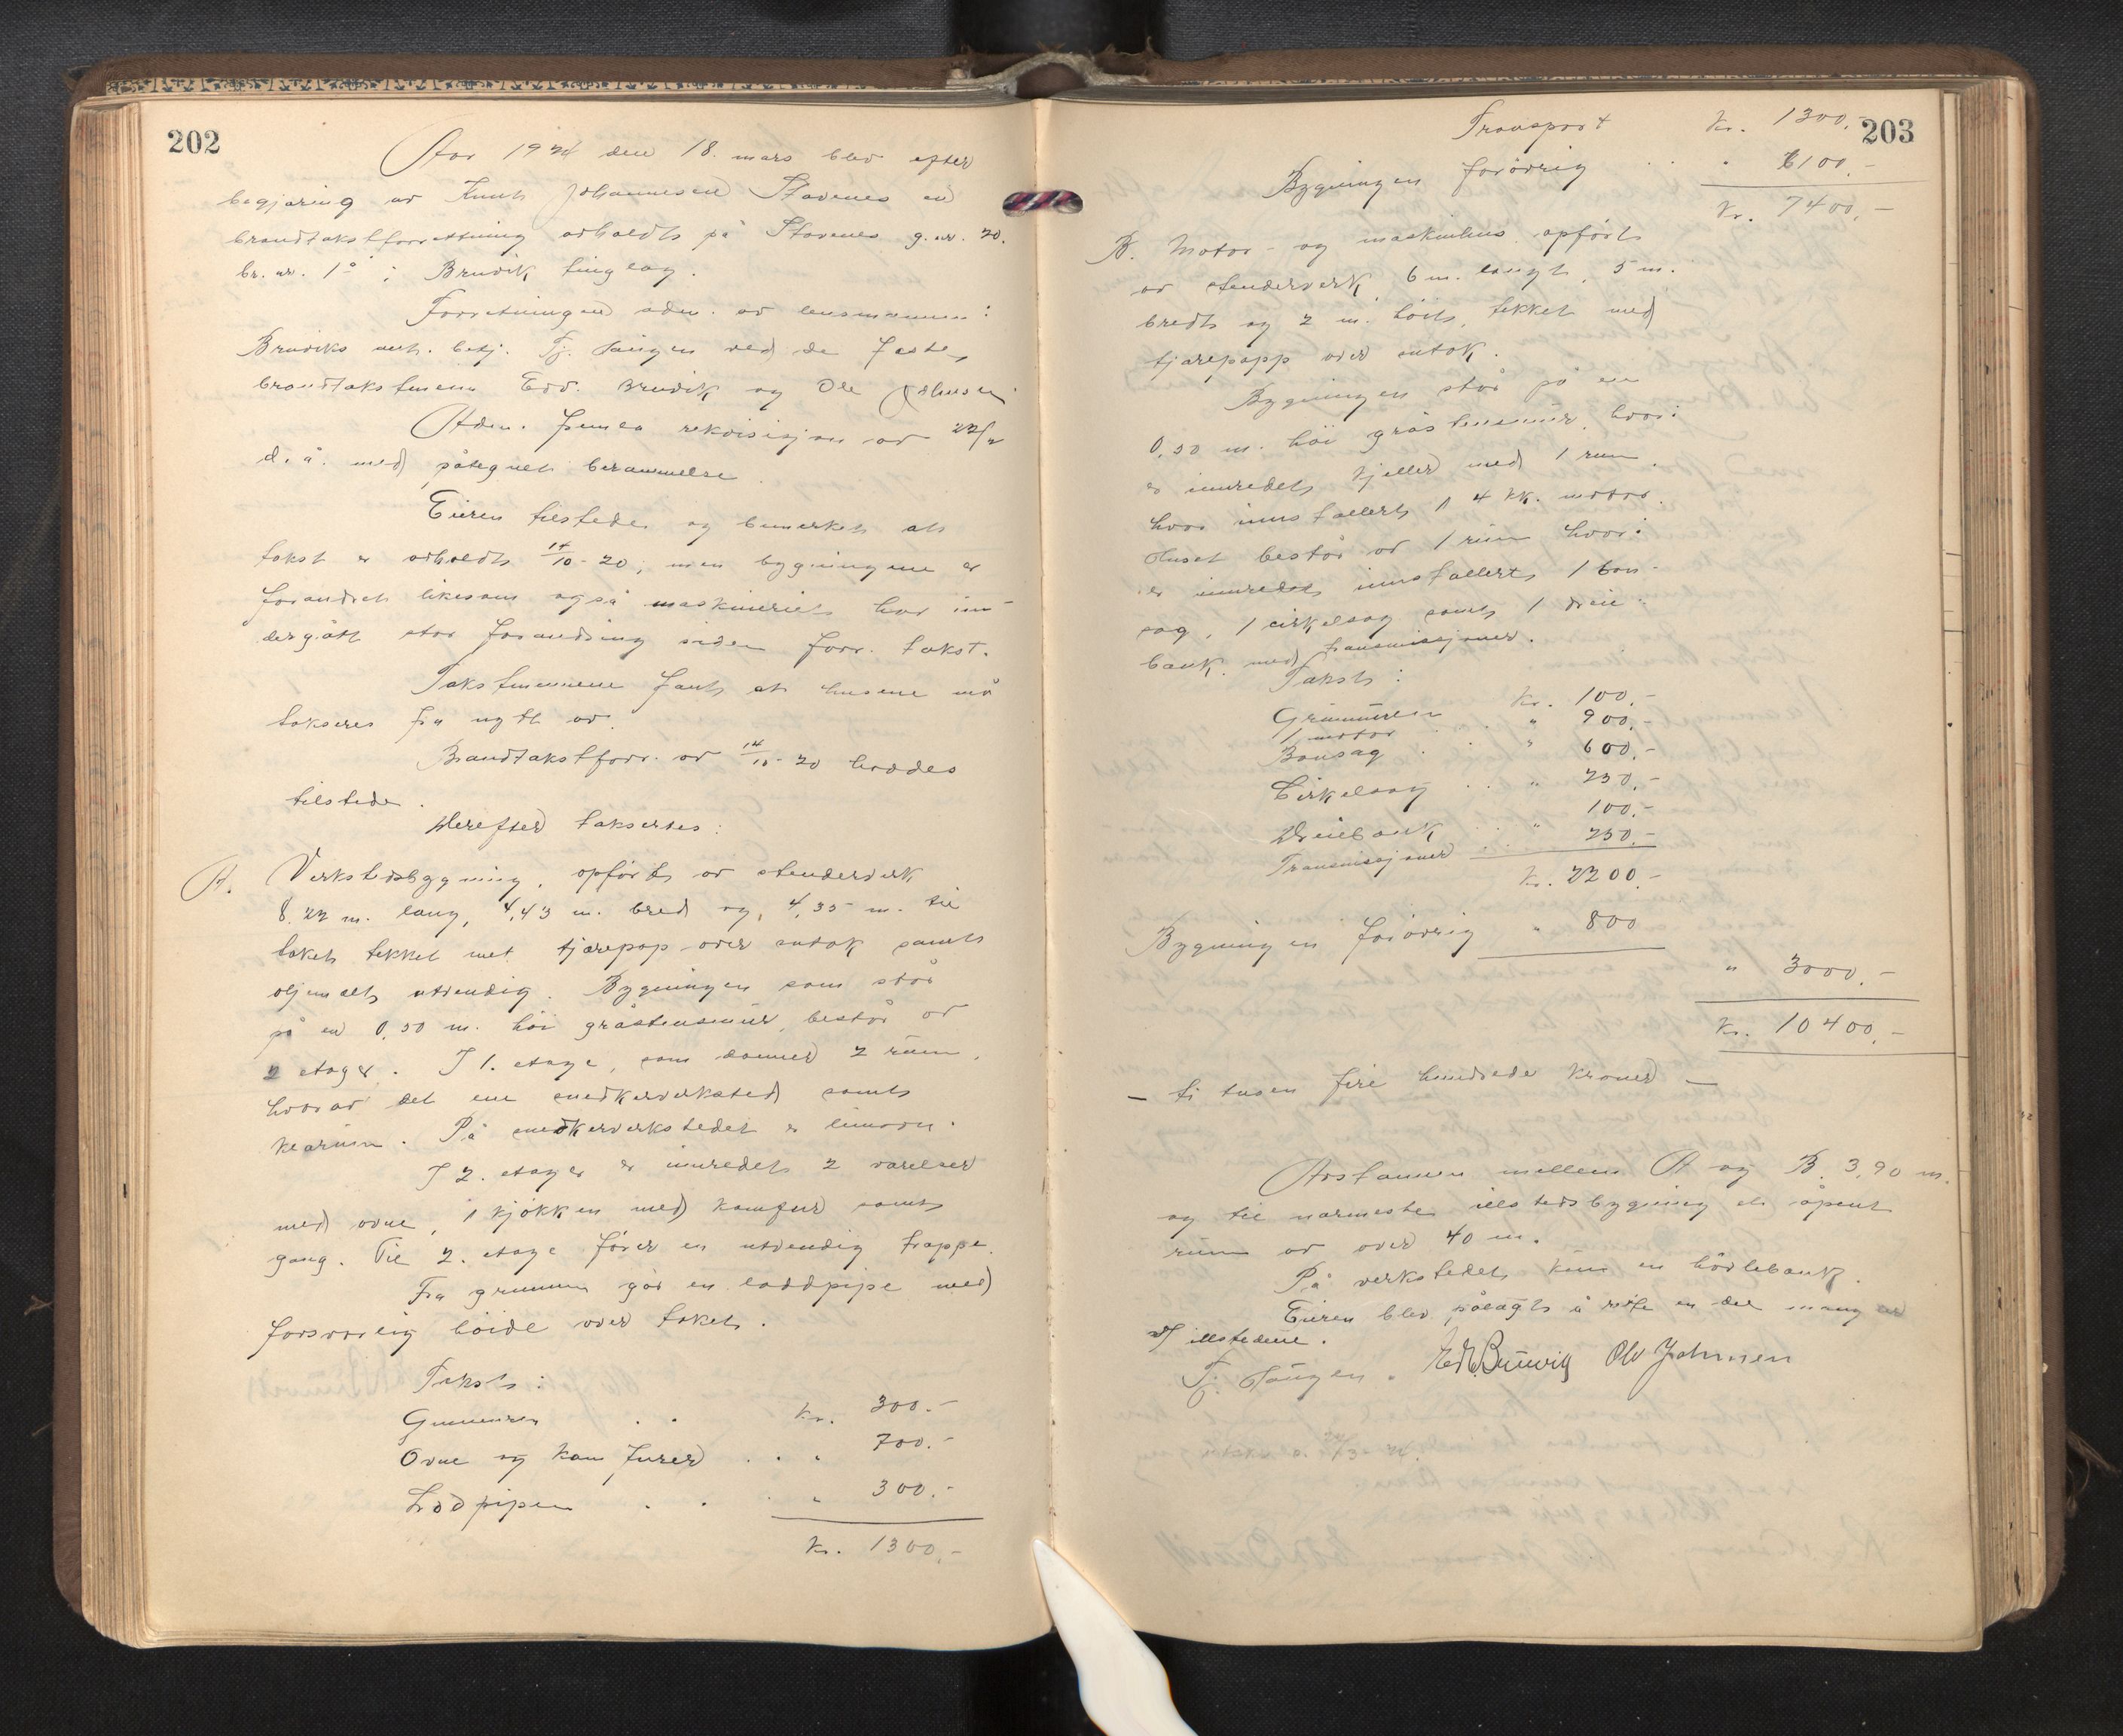 202
Aar 1924 den 18. mars blev efter
begjæring av Knut Johannesen Stavenes en
brandtakstforretning avholdt på Stavenes g.nr. 20.
br. nr. 1 i Bruvik tinglag.
Forretningen adm. av lensmannen i
Bruviks aut. betj. Tj. Haugen ved de faste
brandtakstmenn Edv. Bruvik og Ole Johnsen
Adm. fremla rekvisisjon av 22/2
d. å. med påtegnet berammelse.
Eieren tilstede og bemerket at
takst er avholdt 14/10-20, men bygningene er
forandret likesom også maskineriet har un-
dergått stor forandring siden forr. takst.
Takstmennene fant at husene må
takseres fra nytt av.
Brandtakstforr. av 14/10-20 havdes
tilstede.
Herefter taksertes:
A. Verkstedsbygning, opført av stenderverk
8.22 m. lang, 4,43 m. bred og 4,35 m. til
taket tekket met tjærepap over sutak samt
oljemalt utvendig. Bygningen som står
på en 0,50 m. höi gråstensmur, består av
2 etager. I 1. etage, som danner 2 rum,
hvorav det ene snedkerverksted samt
klærum. På snedkerverkstedet er limovn.
I 2. etager er innredet 2 værelser
med ovne, 1 kjökken med komfur samt
gang. Til 2. etage förer en utvendig trappe.
Fra grunnen går en loddpipe med
forsvarlig höide over taket.
Takst:
Grunmuren . . kr. 300.-
Ovne og komfurer . . " 700.-
Lodpipen . . . " 300.-
Kr. 1300.-
203
Transport kr. 1300.-
Bygningen forövrig . . " 6100.-
Kr. 7400.-
B. Motor- og maskinhus opført
av stenderverk 6 m. langt, 5 m.
bredt og 2 m. höit, tekket med
tjærepapp over sutak.
Bygningen står på en
0,50 m. höi gråstensmur, hvori
er innredet kjeller med 1 rum,
hvor innstallert 1 4 hk. motor.
Huset består av 1 rum hvori
er innredet innstallert 1 bon-
sag, 1 cirkelsag samt 1 dreie-
bank med transmissjoner.
Takst:
Grunmuren kr. 100.-
1 motor . . " 900.-
Bonsag . . " 600.-
Cirkelsag . . " 250.-
Dreiebank . . " 100.-
Transmissjoner . . 250.-
Kr. 2200.-
Bygningen forövrig " 800
" 3000.-
Kr. 10400.-
- ti tusen fire hundrede kroner -
Avstannen mellem A og B. 3,90 m.
og til nærmeste illstedsbygning et åpent
rum av over 40 m.
På verkstedet kun en hövlebank.
Eieren blev pålagt å rette en del mangler
v/ illstedene.
Tj. Haugen. Edv. Bruvik Ole Johnsen